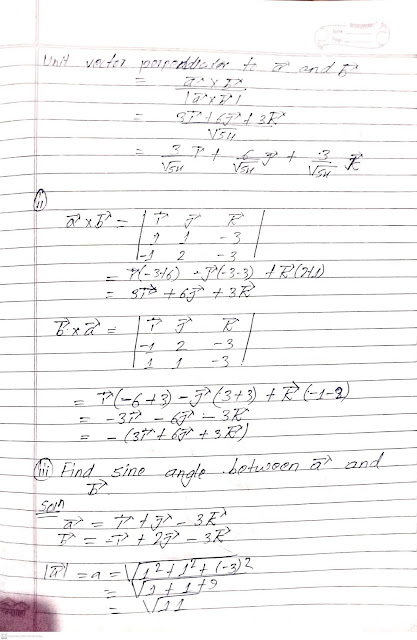 Unit vector perpendicular to a⃗ and b⃗
= a⃗ x b⃗ / |a⃗ x b⃗|
= 3i⃗ + 6j⃗ + 3k⃗ / √54
= 3/√54 i⃗ + 6/√54 j⃗ + 3/√54 k⃗
ii
a⃗ x b⃗ = | i⃗ j⃗ k⃗ |
1 1 -3
-1 2 -3
= i⃗(-3+6) - j⃗(-3-3) + k⃗(2+1)
= 3i⃗ + 6j⃗ + 3k⃗
b⃗ x a⃗ = | i⃗ j⃗ k⃗ |
-1 2 -3
1 1 -3
= i⃗(-6+3) - j⃗(3+3) + k⃗(-1-2)
= -3i⃗ - 6j⃗ - 3k⃗
= - (3i⃗ + 6j⃗ + 3k⃗)
iii Find sine angle between a⃗ and
b⃗
Soln
a⃗ = i⃗ + j⃗ - 3k⃗
b⃗ = -i⃗ + 2j⃗ - 3k⃗
|a⃗| = a = √1² + 1² + (-3)²
= √1 + 1 + 9
= √11